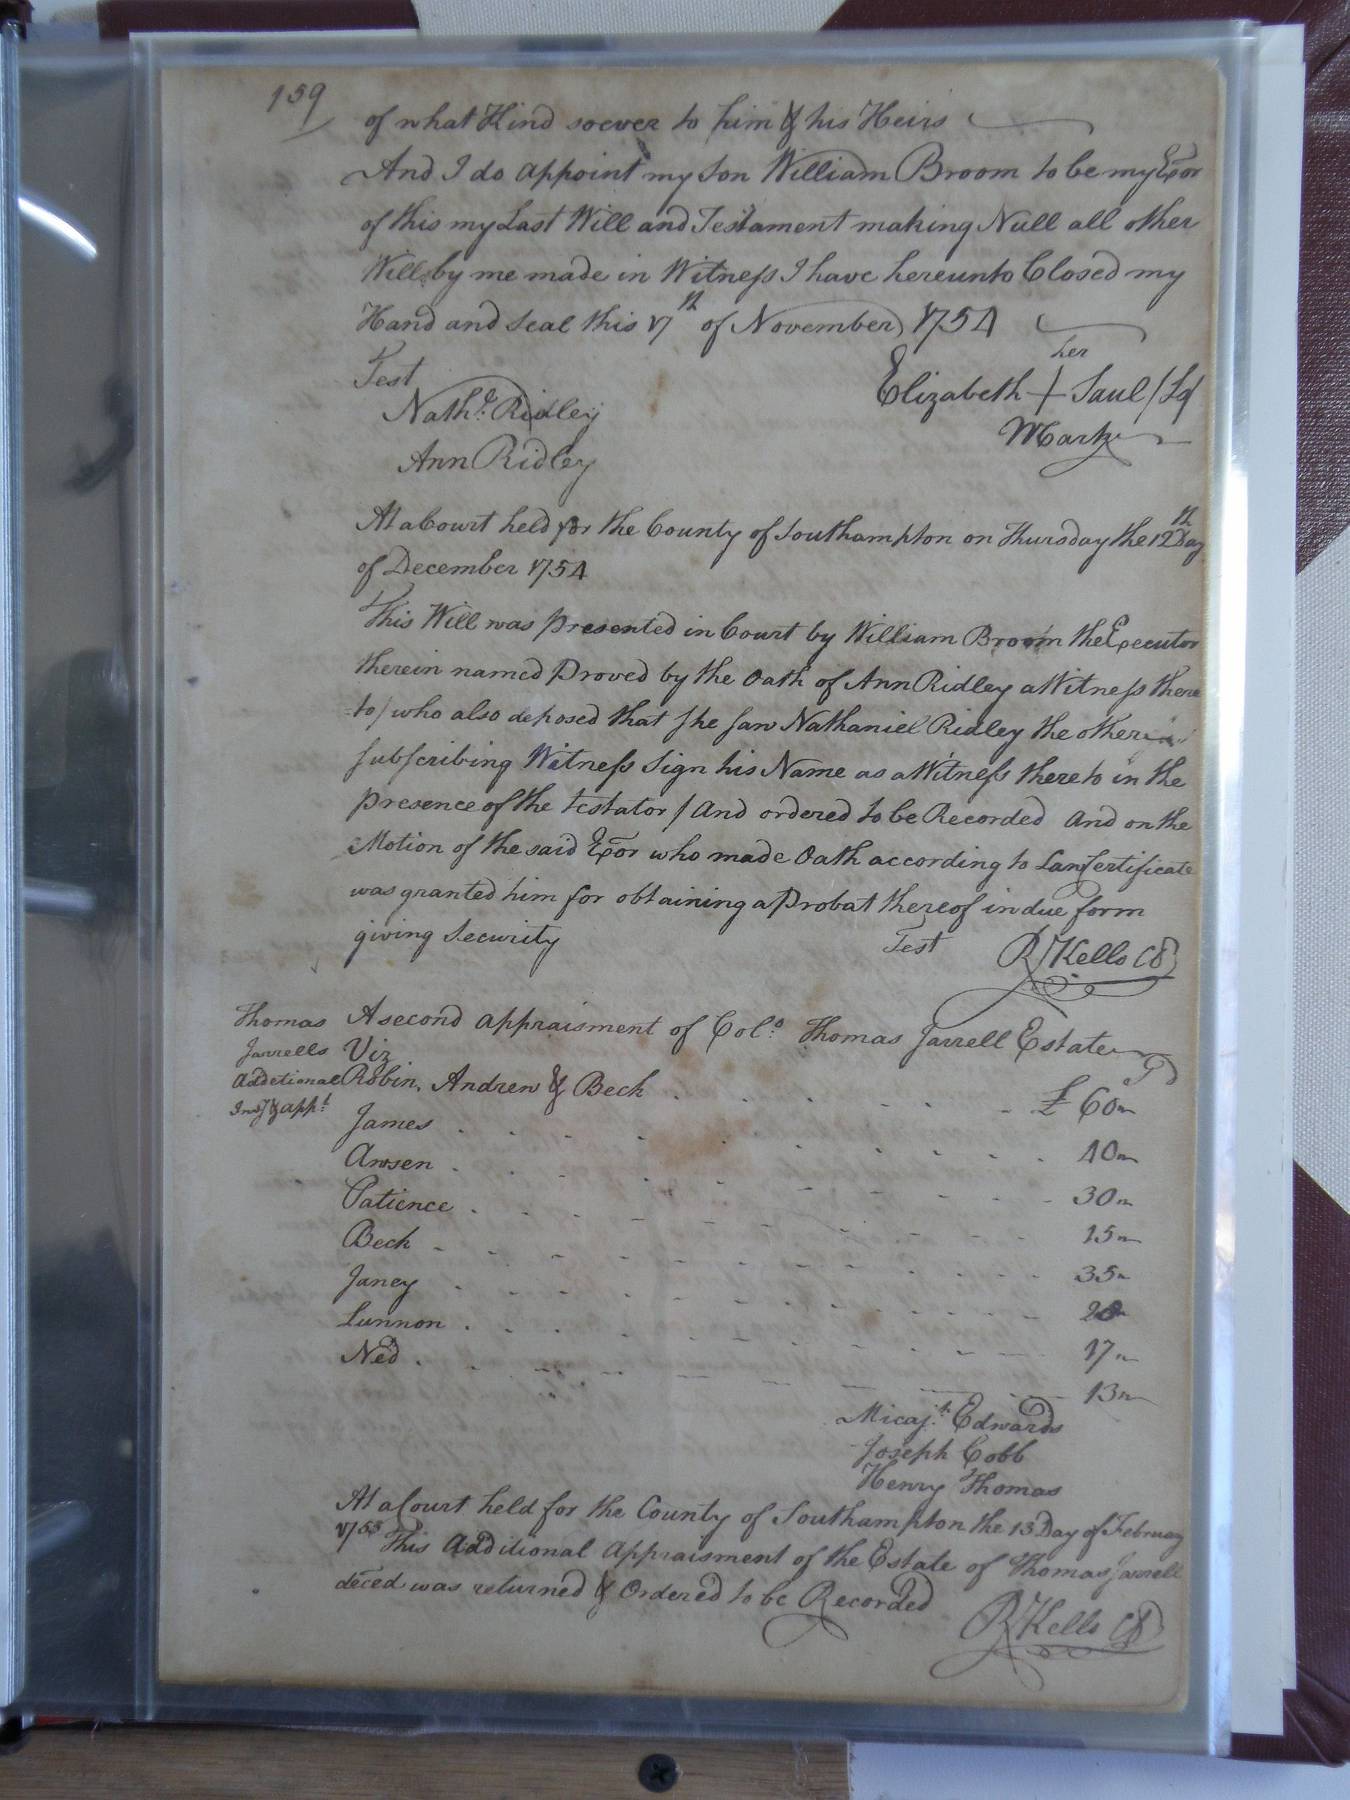 159
of what Kind soever to him & his Heirs
And I do appoint my son William Broom to be my Exor
of this my Last Will and Testament making Null all other
Wills by me made in Witness I have hereunto Closed my
Hand and Seal this 17th of November 1754
Test
her
Nathl. Ridley
Elizabeth + Saul (Ls)
Mark
Ann Ridley
At a Court held for the County of Southampton on Thursday the 12th Day
of December 1754
This Will was presented in Court by William Broom the Executor
therein named Proved by the Oath of Ann Ridley a Witness there
to/ who also deposed that she saw Nathaniel Ridley the other
subscribing Witness Sign his Name as a Witness there to in the
presence of the testator / And ordered to be Recorded And on the
Motion of the said Exor who made Oath according to Law Certificate
was granted him for obtaining a Probat thereof in due form
giving Security
Test
R Kello CC
Thomas
Jarrells
Additional
Invy & appt
A second appraisment of Colo. Thomas Jarrell Estate
Viz
Robin, Andrew & Beck £ 60
James 40
Awsen 30
Patience 15
Beck 35
Janey 20
Lunnon 17
Ned 13
Micajh. Edwards
Joseph Cobb
Henry Thomas
At a Court held for the County of Southampton the 13 Day of February
1755 This Additional Appraisment of the Estate of Thomas Jarrell
deced was returned & Ordered to be Recorded
R Kello CC